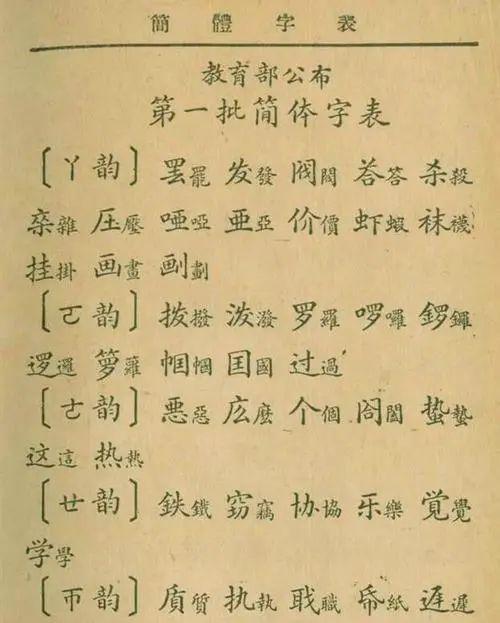 簡體字表
教育部公布
第一批简体字表
〔ㄚ韵〕 罢罷 发發 阀閥 荅答 杀殺
杂雜 压壓 哑啞 亚亞 价價 虾蝦 袜襪
挂掛 画畫 劃
〔ㄛ韵〕 拨撥 泼潑 罗羅 啰囉 锣鑼
逻邏 箩蘿 帼幗 囯國 过過
〔ㄜ韵〕 恶惡 庅麼 个個 阁閤 蛰蟄
这這 热熱
〔ㄝ韵〕 鉄鐵 窃竊 协協 乐樂 覚覺
学學
〔ㄭ韵〕 质質 执執 职職 帋紙 迟遲